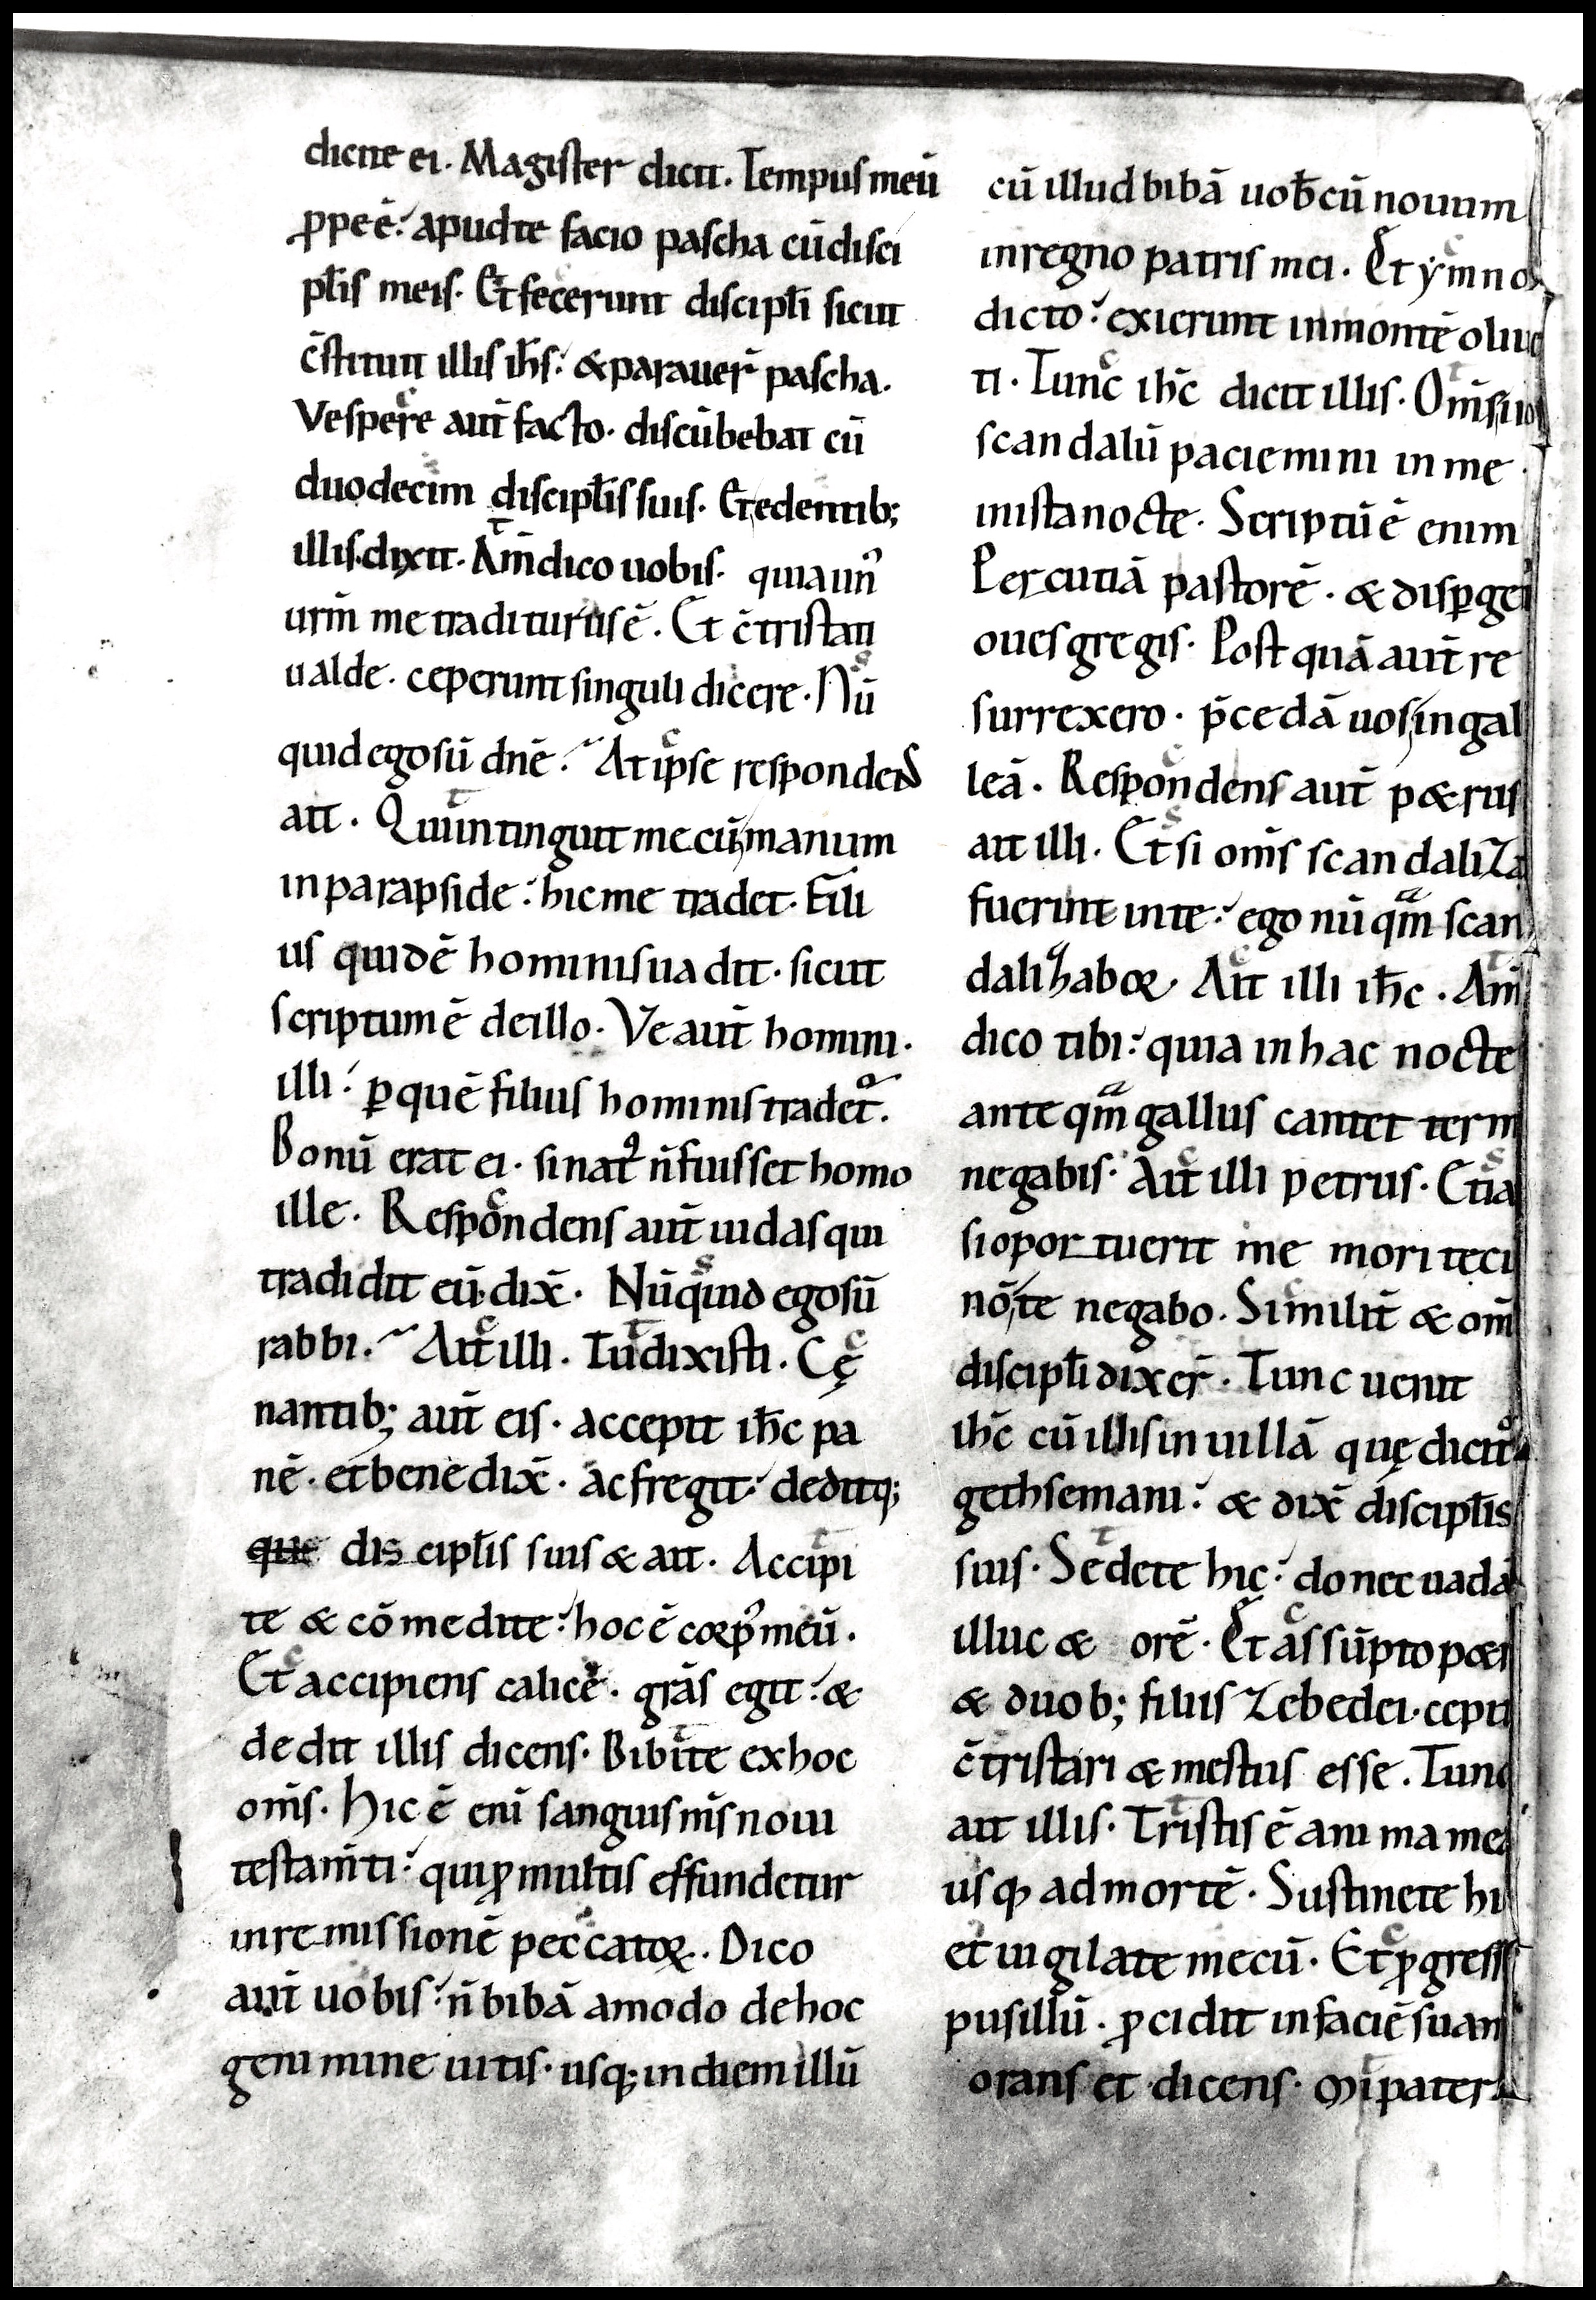 dicite ei. Magister dicit. Tempus meū
ꝓpe ē: apud te facio pascha cū disci
pɫis meis. Et fecerunt discipɫi sicut
c̄stituit illis ih̄s: & parauer̄ pascha.
Vespere aut̄ facto. discūbebat cū
duodecim discipɫis suis. Et edentib;
illis. dixit. Am̄ dico uobis. quia un᾽
urm̄ me traditurus ē. Et c̄tristati
ualde. ceperunt singuli dicere. Nū
quid ego sū dn̄e? At ipse respondens
ait. Qui intinguit mecū manum
in parapside: hic me tradet. Fili
us quidē hominis uadit. sicut
scriptum ē de illo. Ve aut̄ homini.
illi: ꝑ quē filius hominis tradet᷑.
Bonū erat ei. si nat᾽ n̄ fuisset homo
ille. Respondens aut̄ iudas qui
tradidit eū. dix̄. Nūquid ego sū
rabbi? Ait illi. Tu dixisti. Cę
nantib; aut̄ eis. accepit ih̄c pa
nē. et benedix̄. ac fregit: deditq;
que discipɫis suis & ait. Accipi
te & cōmedite: hoc ē corp᾽ meū.
Et accipiens calicē. grās egit: &
dedit illis dicens. Bibite ex hoc
om̄s. Hic ē eni sanguis m̄s noui
testam̄ti: qui ꝓ multis effundetur
in remissionē peccatoꝝ. Dico
aut̄ uobis: n̄ bibā amodo de hoc
genimine uitis. usq; in diem illū
cū illud bibā uob̄cū nouum
in regno patris mei. Et ymno
dicto: exierunt in montē oliue
ti. Tunc ih̄c dicit illis. Om̄s uo
scandalū paciemini in me
in ista nocte. Scriptū ē enim
Percutiā pastorē. & dispꝑge
oues gregis. Post quā aut̄ re
surrexero. p̄cedā uos in gal
leā. Respondens aut̄ p&rus
ait illi. Et si om̄s scandaliza
fuerint in te: ego nūqm̄ scan
dalizaboꝛ. Ait illi ih̄c. Am̄
dico tibi: quia in hac nocte
ante qm̄ gallus cantet ter m
negabis. Ait illi petrus. Etia
si oportuerit me mori tecū
nō te negabo. Similit̄ & om̄
discipɫi dixer̄. Tunc uenit
ih̄c cū illis in uillā quę dicit᷑
gethsemani: & dix̄ discipɫis
suis. Sedete hic: donec uadā
illuc & orē. Et assūpto p&r
& duob; filiis Zebedei. cepit
c̄tristari & mestus esse. Tunc
ait illis. Tristis ē anima mea
usq; ad mortē. Sustinete hi
et uigilate mecū. Et ꝓgress
pusillū. ꝓcidit in faciē suam
orans et dicens. Mi pater